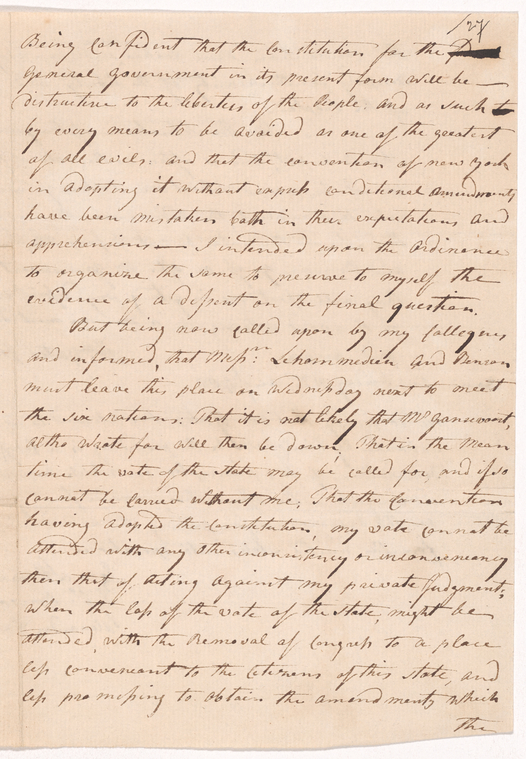 127
Being confident that the Constitution for the
General government in its present form will be
distructive to the liberties of the People. and as such to
by every means to be avoided as one of the greatest
of all evils: and that the convention of new york
in adopting it without express conditional amendments
have been mistaken both in their expectations and
apprehensions — I intended upon the Ordinance
to organize the same to preserve to myself the
evidence of a Dissent on the final question.
But being now called upon by my Collegues
and informed, that Messrs. Lhommedieu and Benson
must leave this place on Wednesday next to meet
the six nations: That it is not likely that Mr Gansevoort,
altho wrote for will then be down, That in the Mean
time the vote of the State may be called for, and if so
cannot be carried without me, That the Convention
having adopted the Constitution, my vote cannot be
attended with any other inconsistency or inconveniency
then that of acting against my private Judgment,
when the loss of the vote of the State, might be
attended, with the Removal of Congress to a place
less conveneant to the Citizens of this State, and
less promissing to obtain the amendments which
the